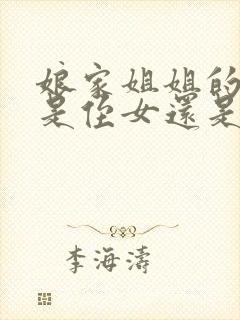 娘家姐姐的
是侄女還是
李海濤